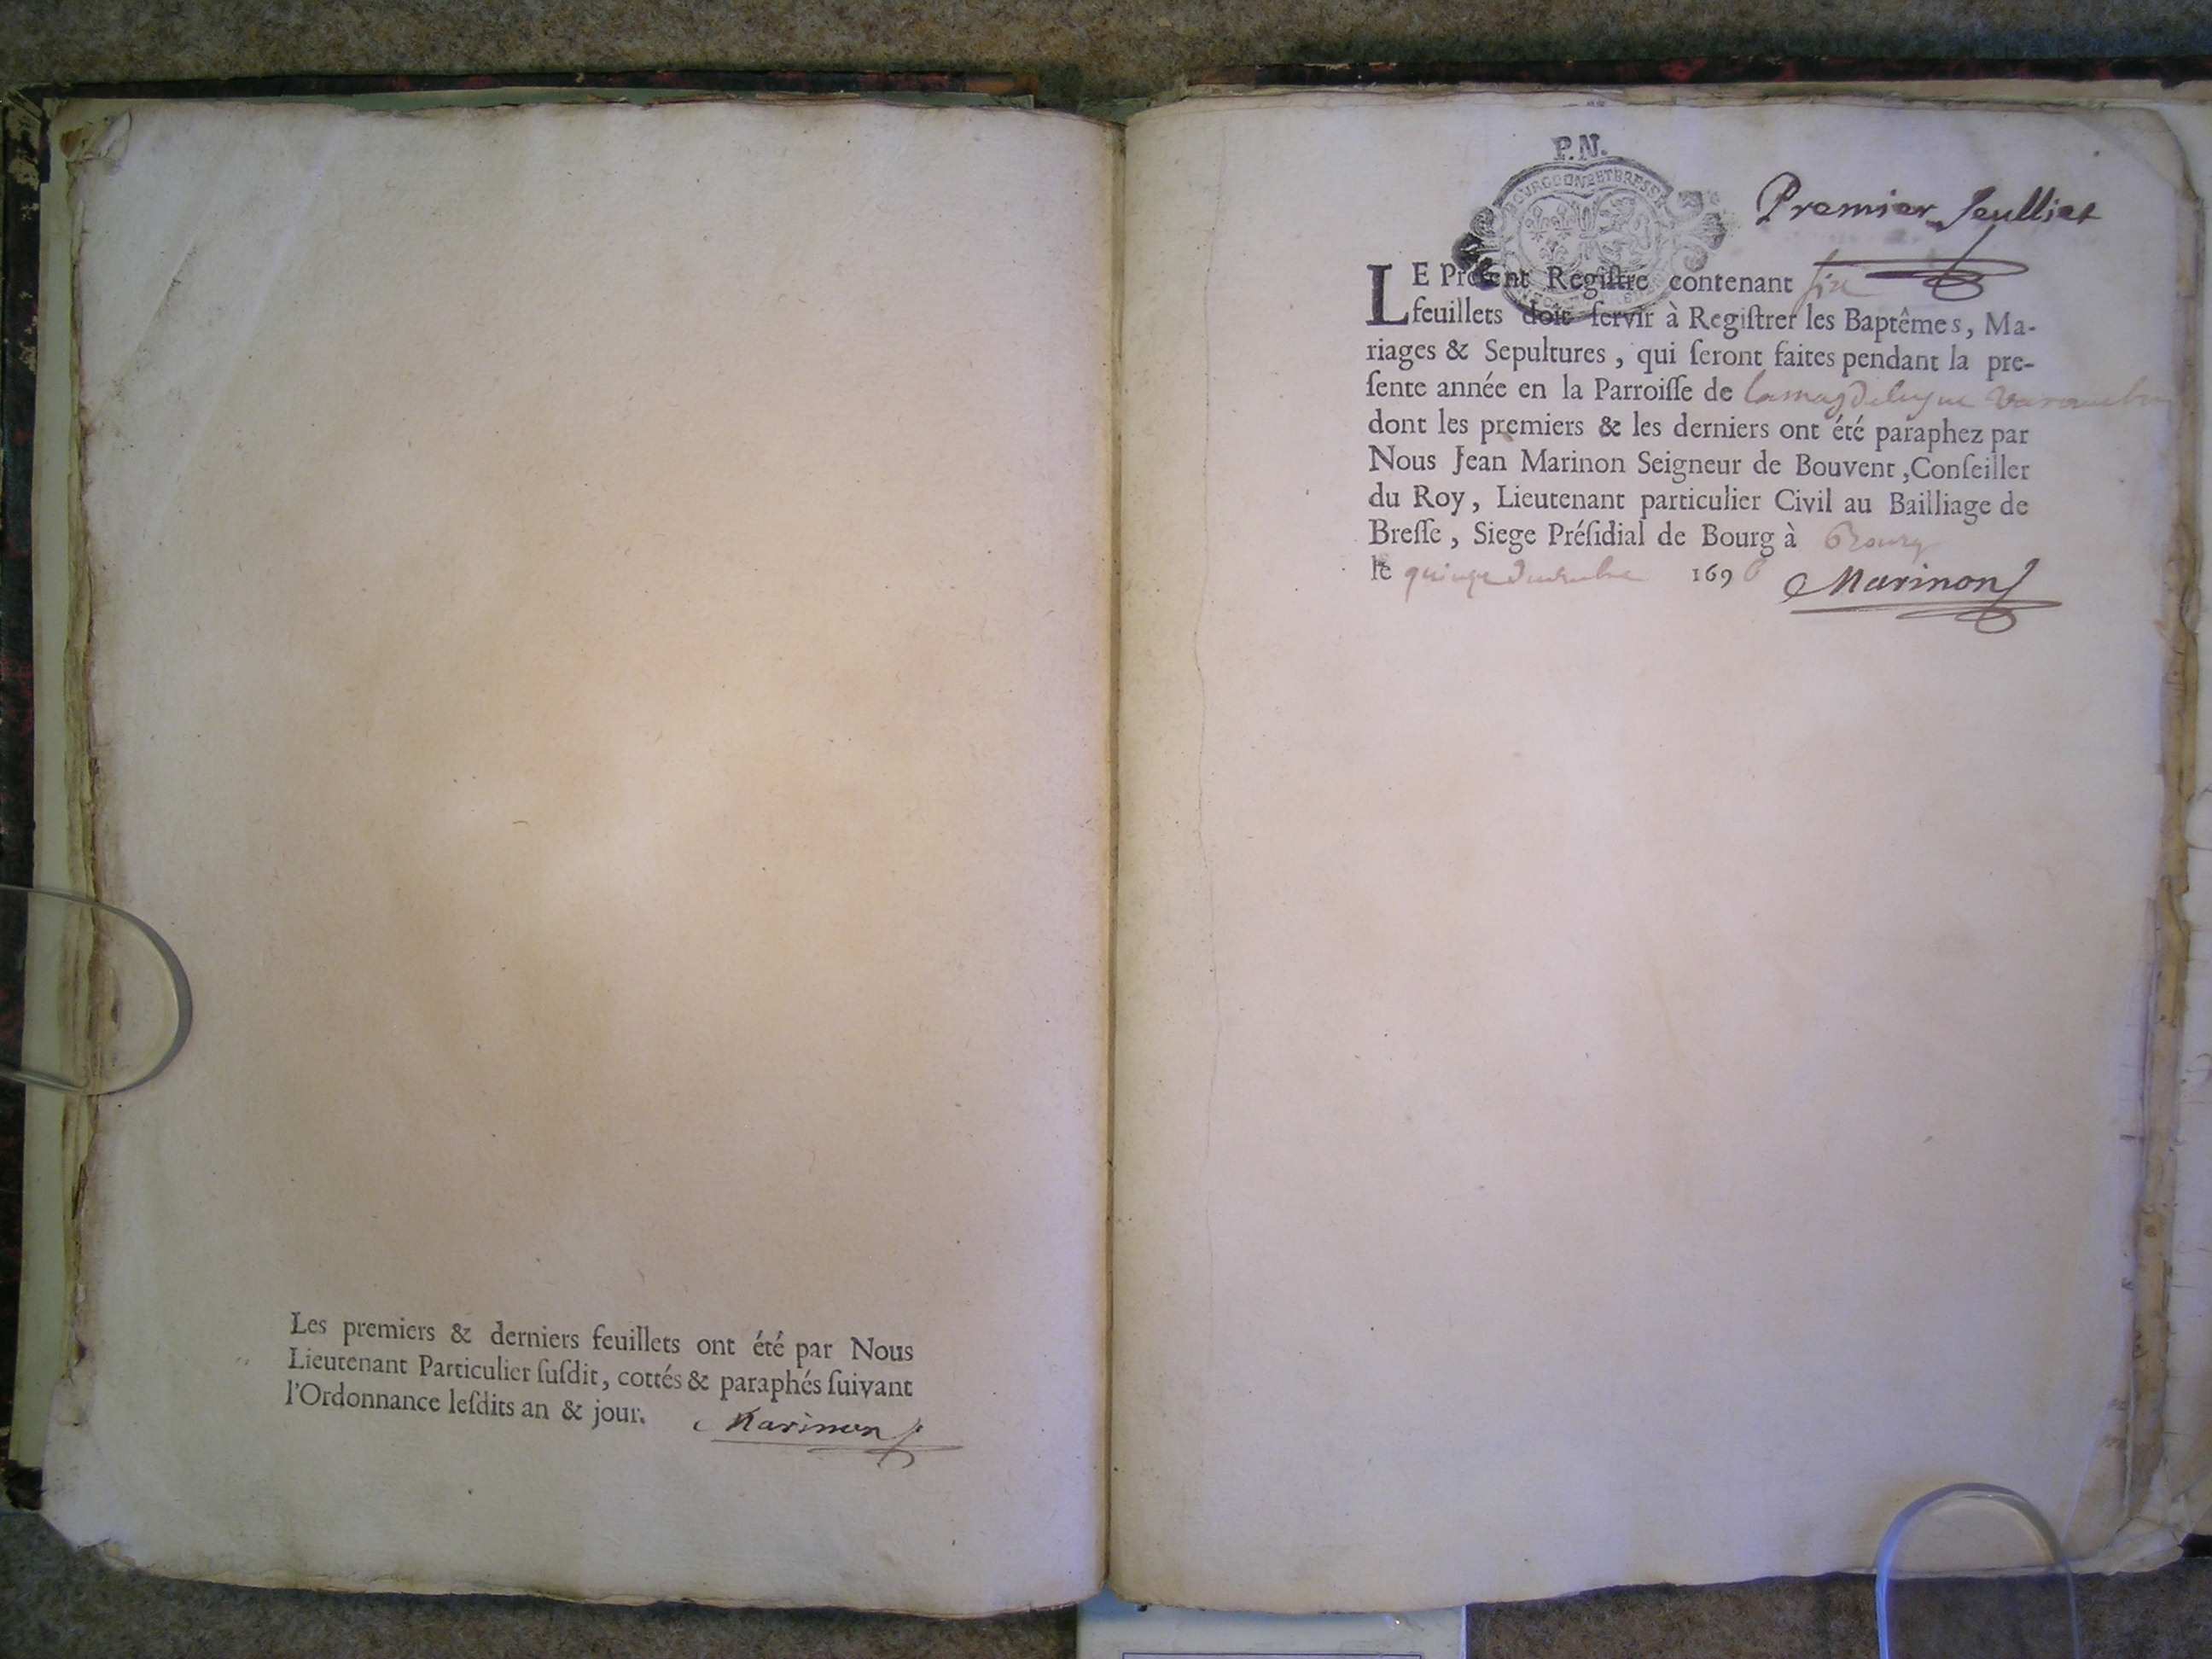 Les premiers & derniers feuillets ont été par Nous
Lieutenant Particulier ſuſdit, cottés & paraphés ſuivant
l'Ordonnance leſdits an & jour. Marinon
P.N.
Premier feulliet
LE Preſent Regiſtre contenant ſix
feuillets doit ſervir à Regiſtrer les Baptêmes, Ma-
riages & Sepultures, qui ſeront faites pendant la pre-
ſente année en la Parroiſſe de
dont les premiers & les derniers ont été paraphez par
Nous Jean Marinon Seigneur de Bouvent, Conſeiller
du Roy, Lieutenant particulier Civil au Bailliage de
Breſſe, Siege Préſidial de Bourg à Bourg
le quinze 169 Marinon